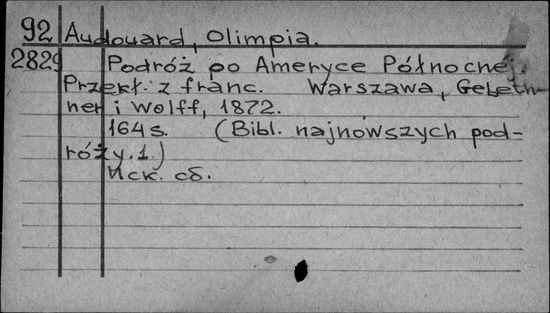 92 Audouard, Olimpia.
2829 Podróż po Ameryce Północnej.
Przekł. z franc. Warszawa, Gebeth-
ner i Wolff, 1872.
164 s. (Bibl. najnowszych pod-
róży. 1.)
Иск. сб.